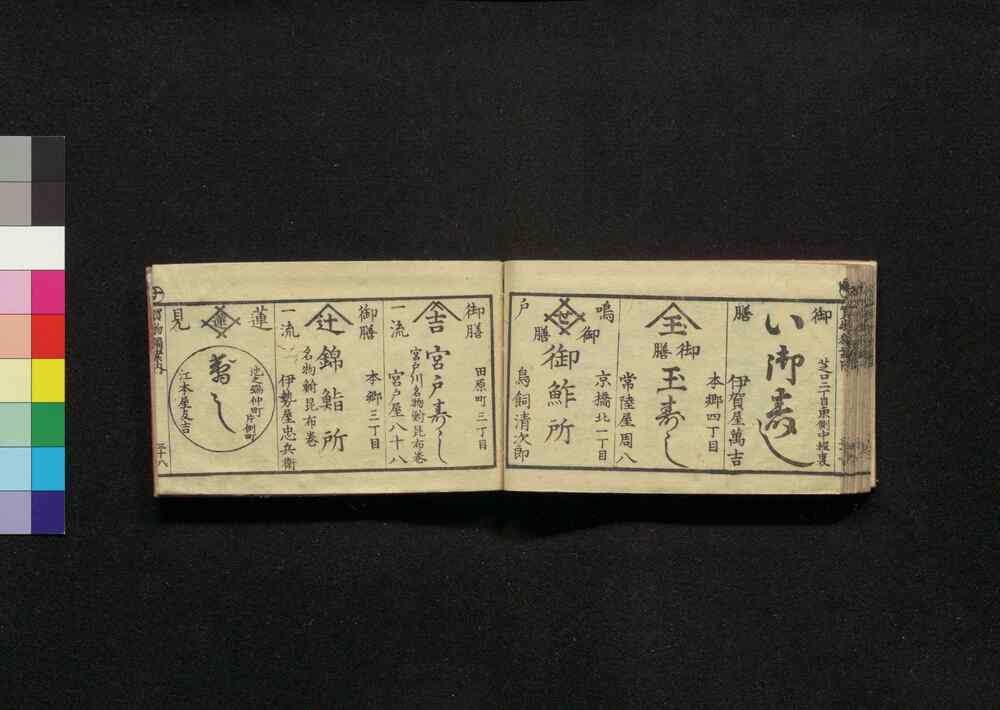 御膳
い御寿し
芝口二丁目東側中程裏
伊賀屋萬吉
玉
御膳
玉寿し
本郷四丁目
常陸屋周八
鳴戸
世
御膳
御鮓所
京橋北一丁目
鳥飼清次郎
御膳
一流
吉
宮戸寿し
宮戸川名物鮒昆布巻
田原町三丁目
宮戸屋八十八
御膳
一流
辻
錦鮨所
名物鮒昆布巻
本郷三丁目
伊勢屋忠兵衛
蓮見
蓮
寿し
池之端仲町片側町
江本屋友吉
買物獨案内
三十八